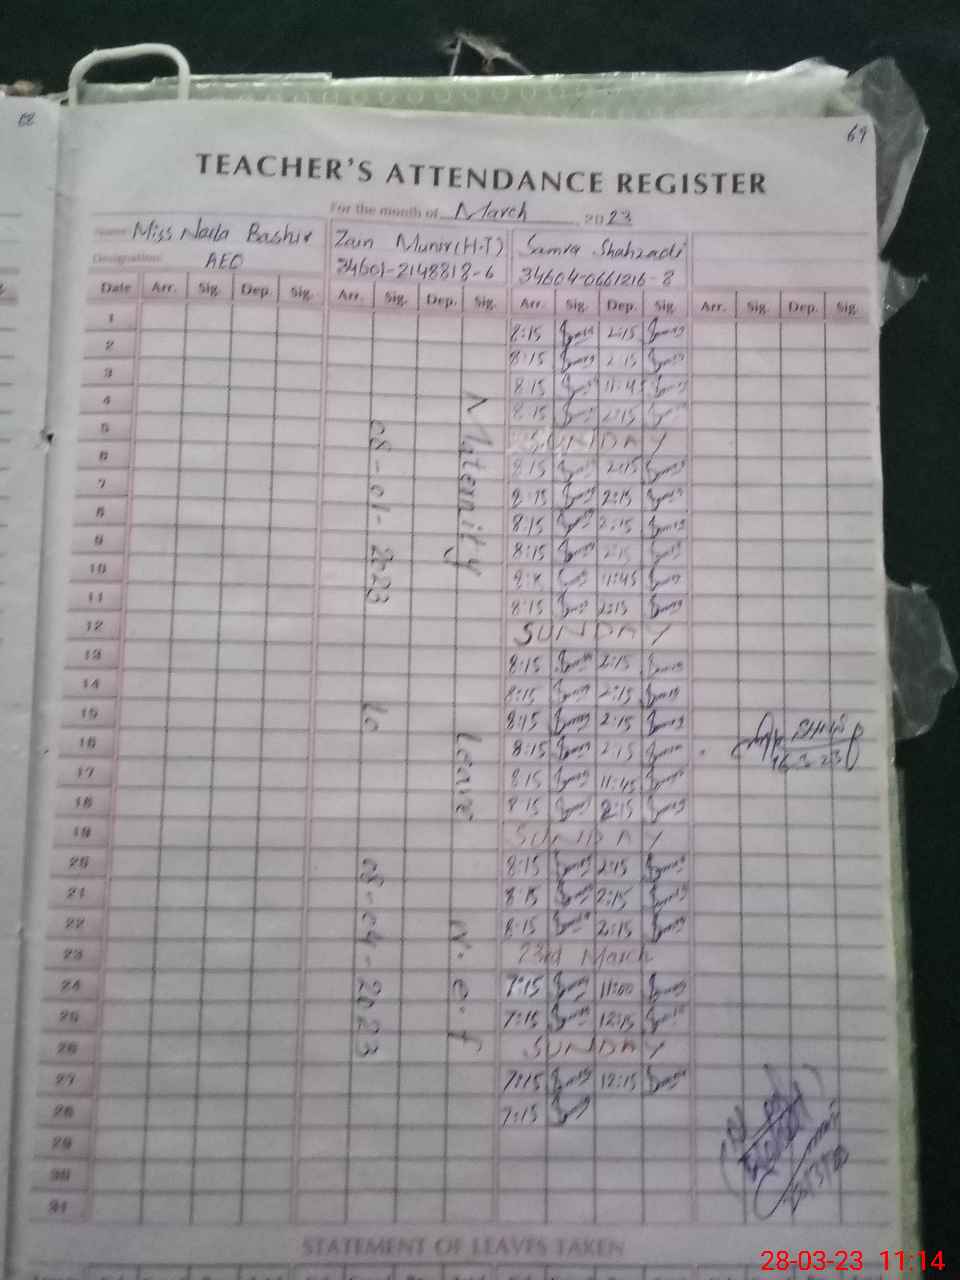 69
TEACHER'S ATTENDANCE REGISTER
For the month of March 2023
Name Miss Naila Bashir Zain Munir (H.T) Samra Shahzadi
Designation AEO 34601-2148818-6 34604-0661216-8
Date Arr. Sig. Dep. Sig. Arr. Sig. Dep. Sig. Arr. Sig. Dep. Sig. Arr. Sig. Dep. Sig.
1 8:15 2:15
2 8:15 2:15
3 8:15 11:45
4 8:15 2:15
5 SUNDAY
6 8:15 2:15
7 8:15 2:15
8 8:15 2:15
9 8:15 2:15
10 11:45
11 8:15 2:15
12 SUNDAY
13 8:15 2:15
14 8:15 2:15
15 8:15 2:15
16 8:15 2:15
17 8:15 11:45
18 8:15 2:15
19 SUNDAY
20 8:15 2:15
21 8:15 2:15
22 8:15 2:15
23 23rd March
24 7:15 11:00
25 7:15 12:15
26 SUNDAY
27 7:15 12:15
28 7:15
29
30
31
Maternity Leave w.e.f
08-01-2023 to 08-04-2023
16-3-23
STATEMENT OF LEAVES TAKEN
28-03-23 11:14